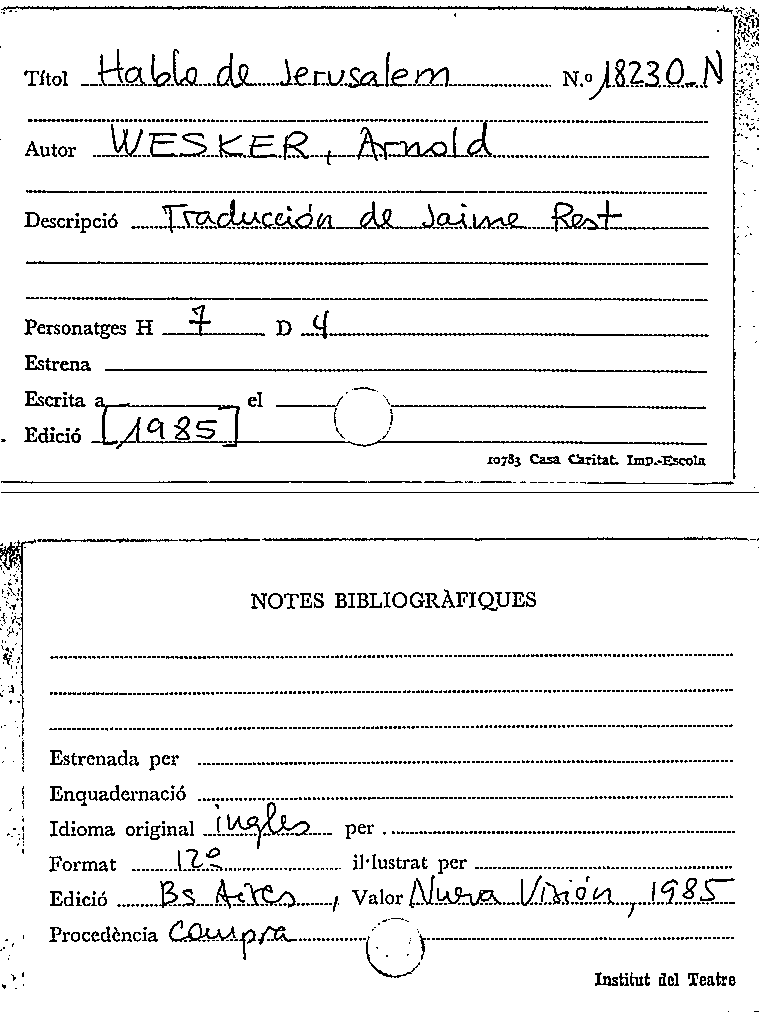 Títol Hablo de Jerusalem N.º 18230-N
Autor WESKER, Arnold
Descripció Traducción de Jaime Rest
Personatges H 7 D 4
Estrena
Escrita a el
Edició [1985]
10783 Casa Caritat. Imp.-Escola
NOTES BIBLIOGRÀFIQUES
Estrenada per
Enquadernació
Idioma original ingles per
Format 12º il·lustrat per
Edició Bs Aires, Valor Nueva Visión, 1985
Procedència Compra
Institut del Teatre